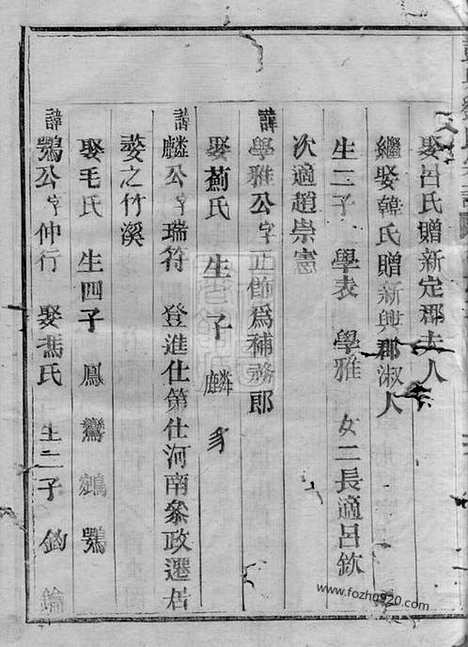 娶呂氏贈新定郡夫人
繼娶韓氏贈新興郡淑人
生二子 學表 學雅 女二長適呂欽
次適趙崇憲
諱學雅公字正節爲補務郎
娶薊氏 生子麟
諱麟公字瑞符 登進仕第仕河南叅政遷居
婺之竹溪
娶毛氏 生四子 鳳 鸞 鵷 鶚
諱鶚公字仲行 娶馮氏 生二子 鈎 錀
www.fozhu920.com